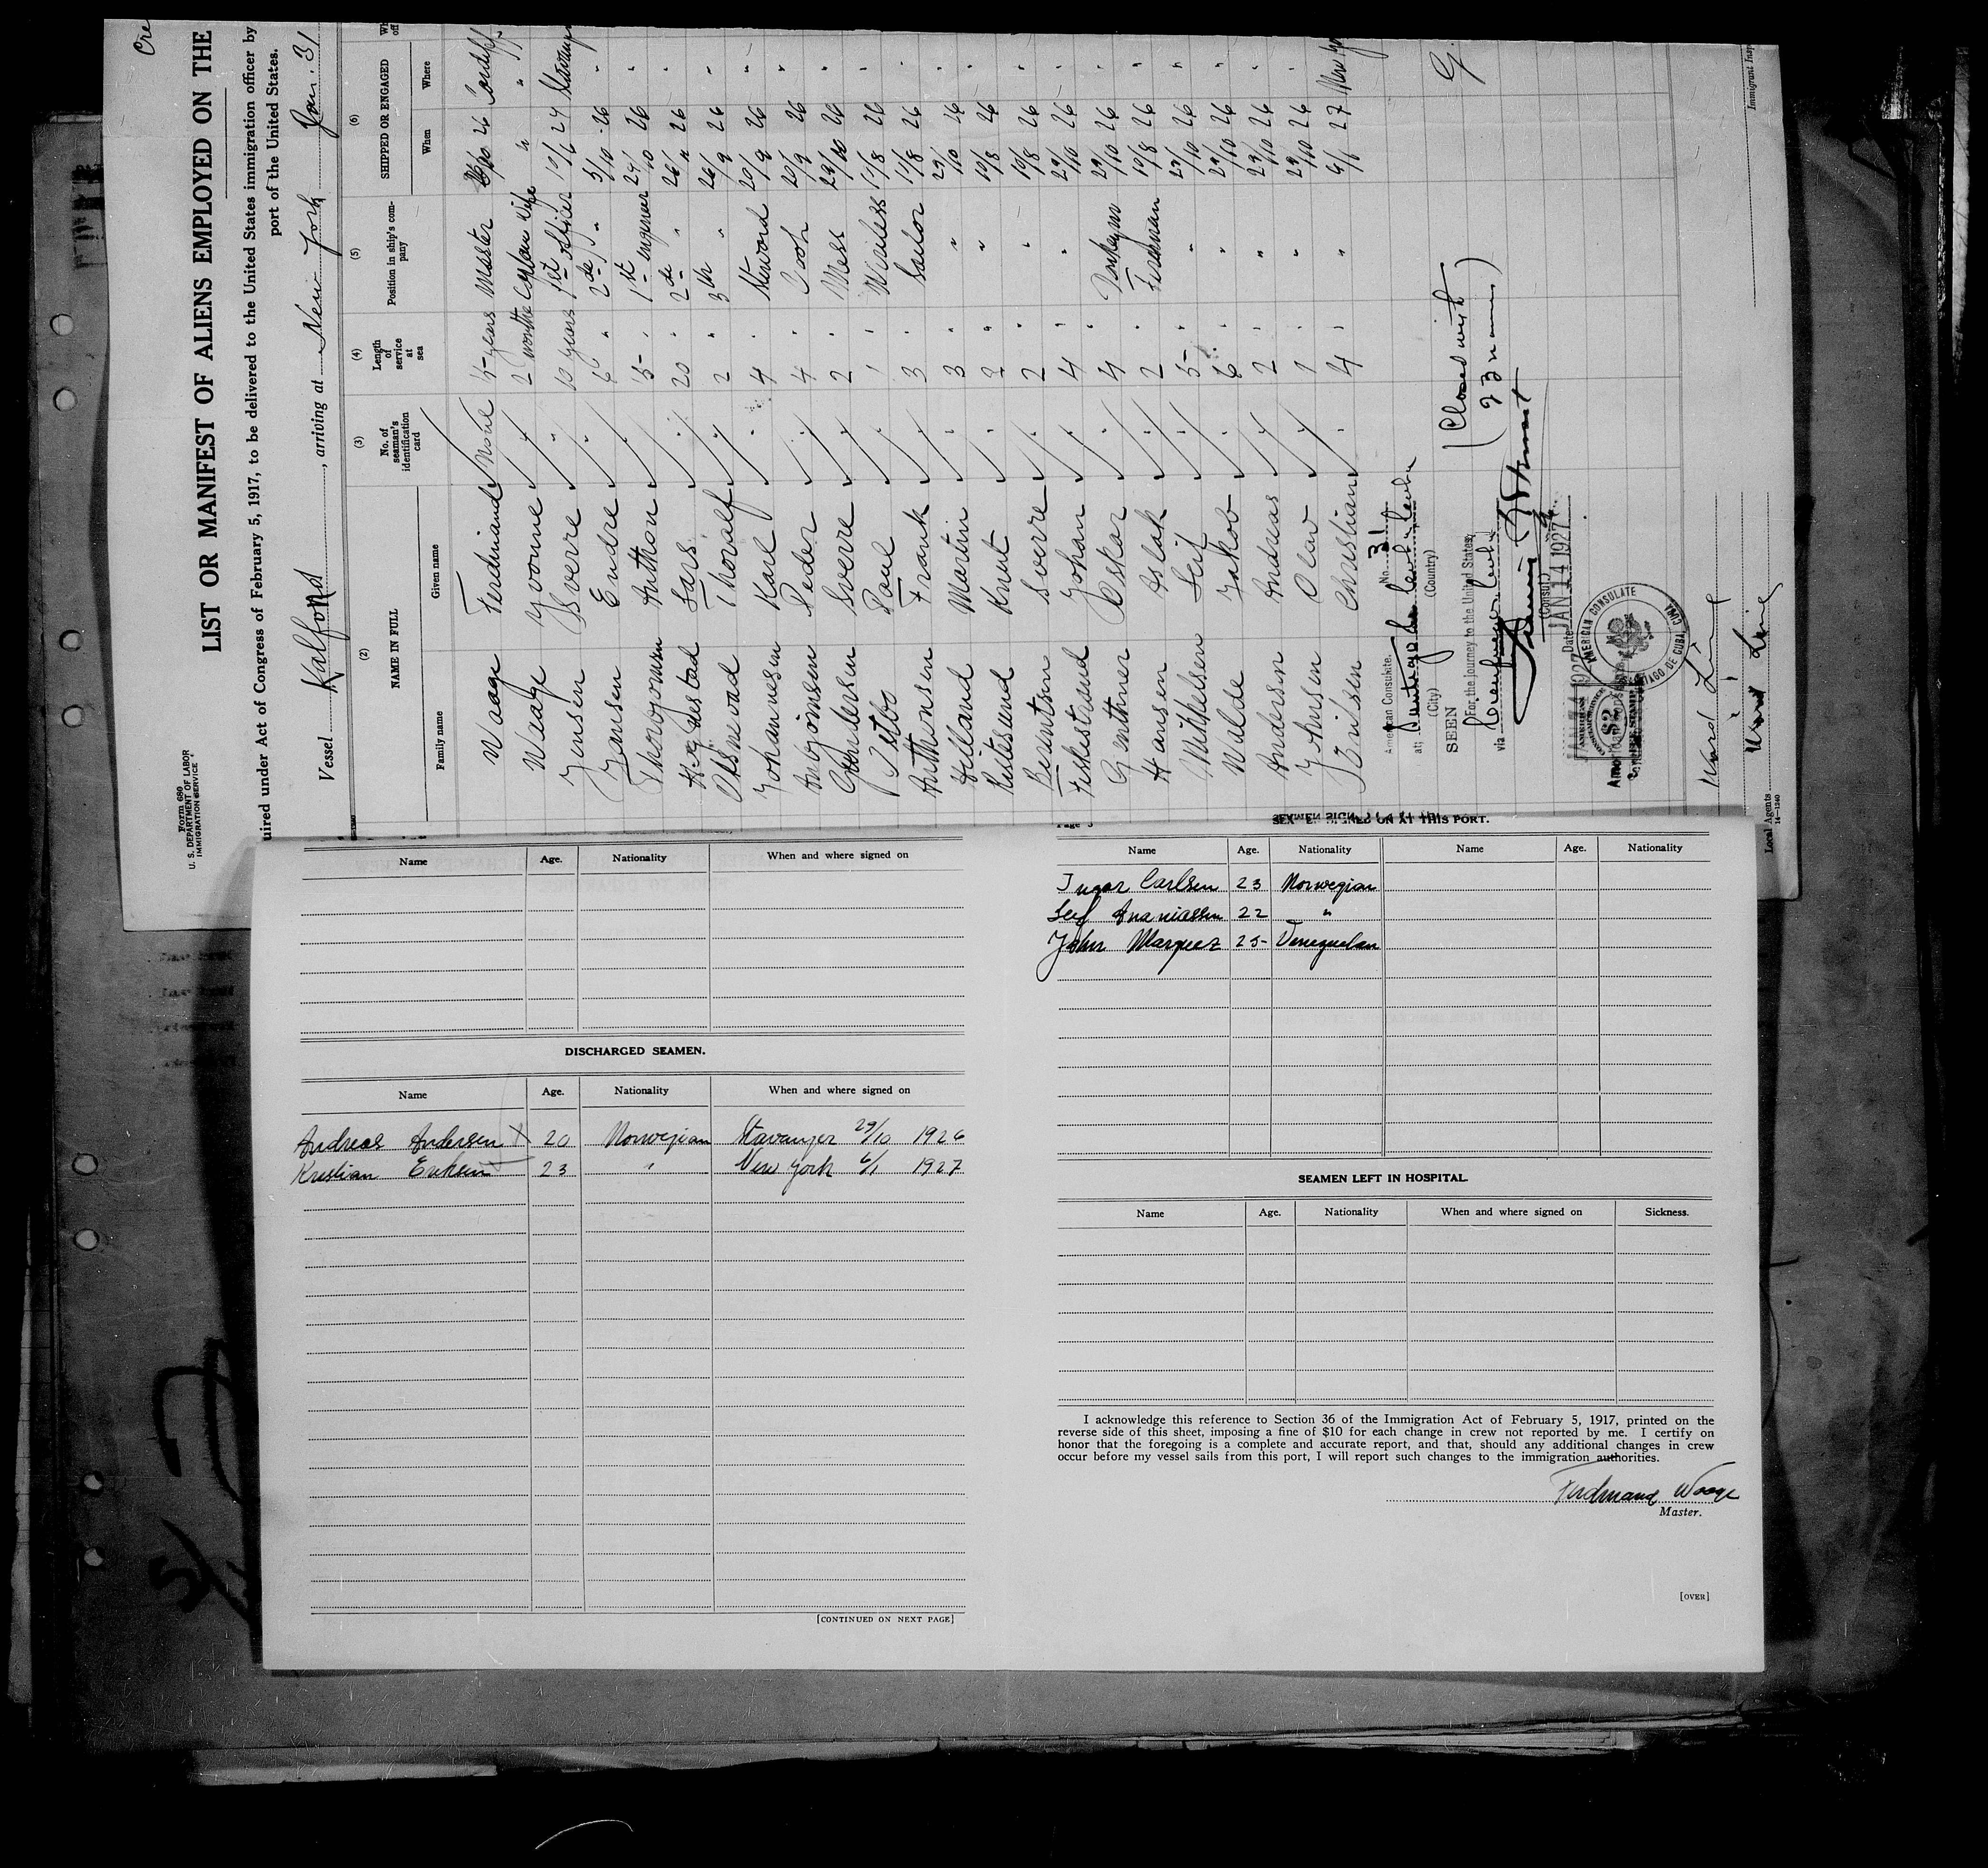 Cre
Form 680
U. S. DEPARTMENT OF LABOR
IMMIGRATION SERVICE
LIST OR MANIFEST OF ALIENS EMPLOYED ON THE
uired under Act of Congress of February 5, 1917, to be delivered to the United States immigration officer by
port of the United States.
Vessel Kalfond, arriving at New York Jan. 31
(2) (3) (4) (5) (6)
NAME IN FULL No. of seaman's identification card Length of service at sea Position in ship's company SHIPPED OR ENGAGED
Family name Given name When Where
Waage Ferdinand none 15 years Master 26 Cardiff
Waage Yvonne 2 months Captain Wife " "
Jensen Sverre 10 years 1st officer 10/6 24 Stavanger
Jansen Endre 6 " 2de " 5/10 26 "
Thorbjornsen Anthon 15 " 1st Engineer 29/10 26 "
Lars 20 " 2de " 26 "
Thoralf 2 " 3th " 26/9 26 "
Johannesen Karl 4 " Steword 20/9 26 "
Peder 4 " Cook 20/9 26 "
Gundersen Sverre 2 " Mess 29/10 26 "
Paul 1 " Wireless 11/8 26 "
Anthonsen Frank 3 " Sailor 11/8 26 "
Helland Martin 3 " " 29/10 26 "
Knut 2 " " 19/8 26 "
Berentsen Sverre 2 " " 19/8 26 "
Fiskestrand Johan 4 " " 29/10 26 "
Genthner Oskar 4 " Donkeyman 29/10 26 "
Hansen Aslak 2 " Fireman 19/8 26 "
Mikkelsen Leif 5 " " 29/10 26 "
Walde Jakob 6 " " 29/10 26 "
Andersen Andreas 2 " " 29/10 26 "
Johnsen Olav 1 " " 29/10 26 "
Christian 4 " " 6/1 27 New York
American Consulate. No. 31
at: Santiago de Cuba, Cuba
(City) (Country)
SEEN
For the journey to the United States,
via Cienfuegos, Cuba
(Closed with
23 names)
(Consul)
Date JAN 14 1927
AMERICAN CONSULATE
SANTIAGO DE CUBA, CUBA
$2
Ward Line
Ward Line
Local Agents
14—1240
Immigrant Insp
Name Age. Nationality When and where signed on
DISCHARGED SEAMEN.
Name Age. Nationality When and where signed on
Andreas Andersen X 20 Norwegian Stavanger 29/10 1926
Kristian Eriksen 23 " New York 6/1 1927
[CONTINUED ON NEXT PAGE]
SEAMEN SIGNED ON AT THIS PORT.
Name Age. Nationality Name Age. Nationality
Ingar Carlsen 23 Norwegian
Leif Ananiassen 22 "
John Marquez 25 Venezuelan
SEAMEN LEFT IN HOSPITAL.
Name Age. Nationality When and where signed on Sickness.
I acknowledge this reference to Section 36 of the Immigration Act of February 5, 1917, printed on the
reverse side of this sheet, imposing a fine of $10 for each change in crew not reported by me. I certify on
honor that the foregoing is a complete and accurate report, and that, should any additional changes in crew
occur before my vessel sails from this port, I will report such changes to the immigration authorities.
Ferdinand Waage
Master.
[OVER]